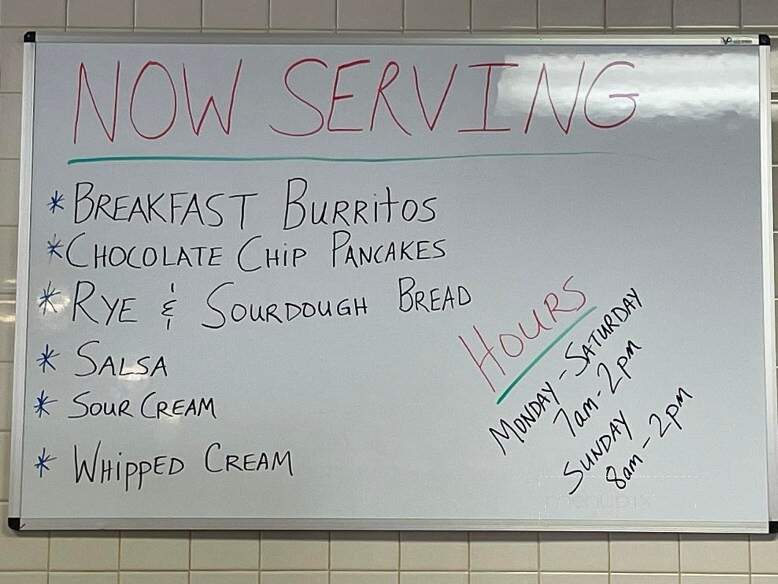 NOW SERVING
* BREAKFAST BURRITOS
* CHOCOLATE CHIP PANCAKES
* RYE & SOURDOUGH BREAD
* SALSA
* SOUR CREAM
* WHIPPED CREAM
HOURS
MONDAY - SATURDAY
7am - 2pm
SUNDAY
8am - 2pm